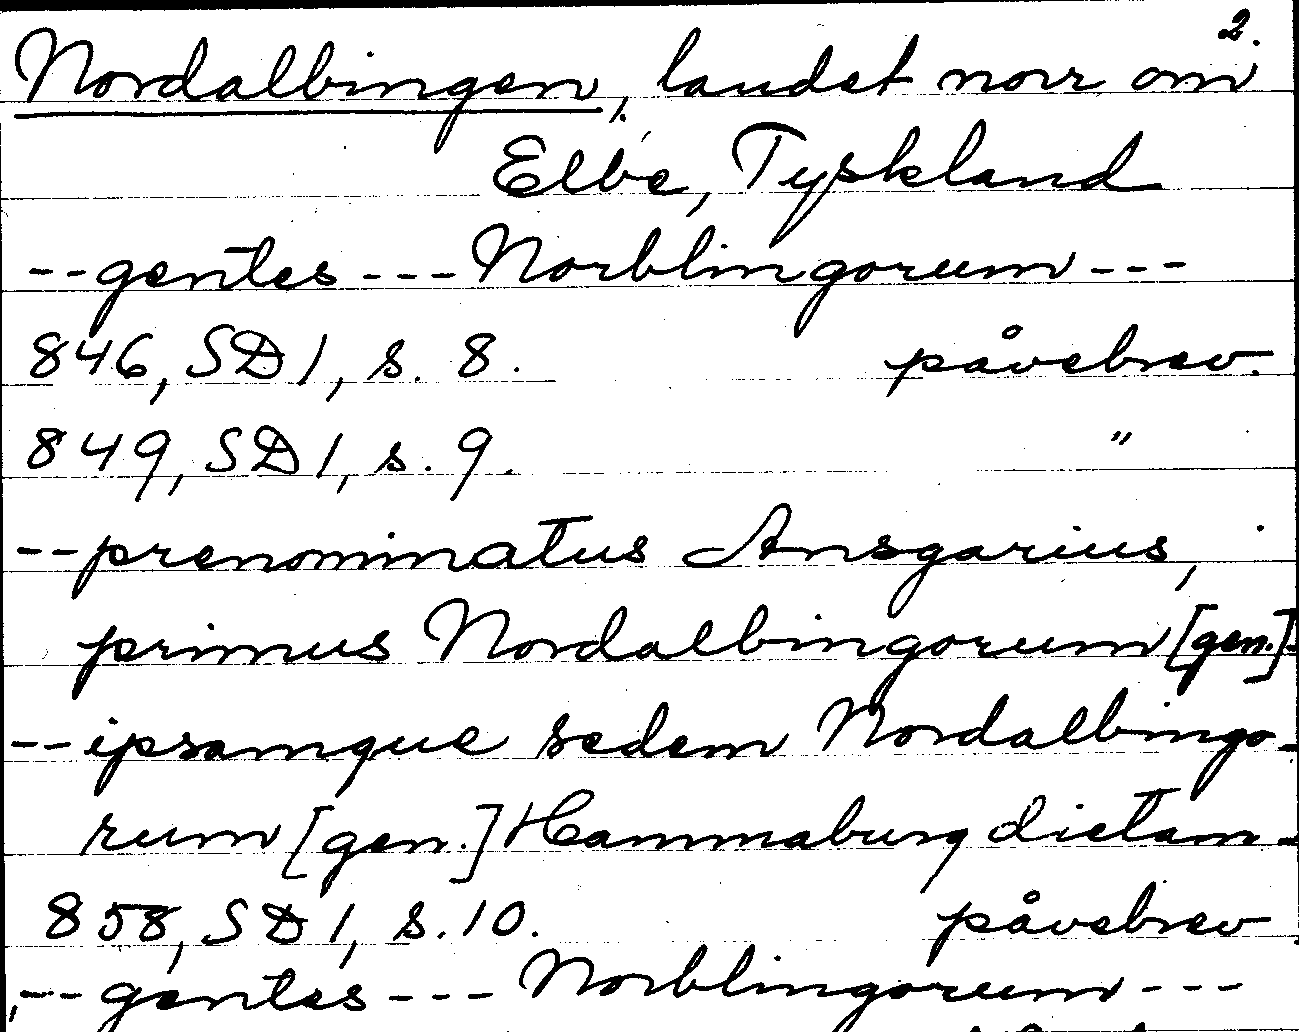 2.
Nordalbingen, landet norr om
Elbe, Tyskland
--gentes---Norblingorum---
846, SD 1, s. 8. påvebrev.
849, SD 1, s. 9. "
--prenominatus Ansgarius,
primus Nordalbingorum [gen.]-
--ipsamque sedem Nordalbingo-
rum [gen.] Hammaburg dictam-
858, SD 1, s. 10. påvebrev
,--gentes---Norblingorum---